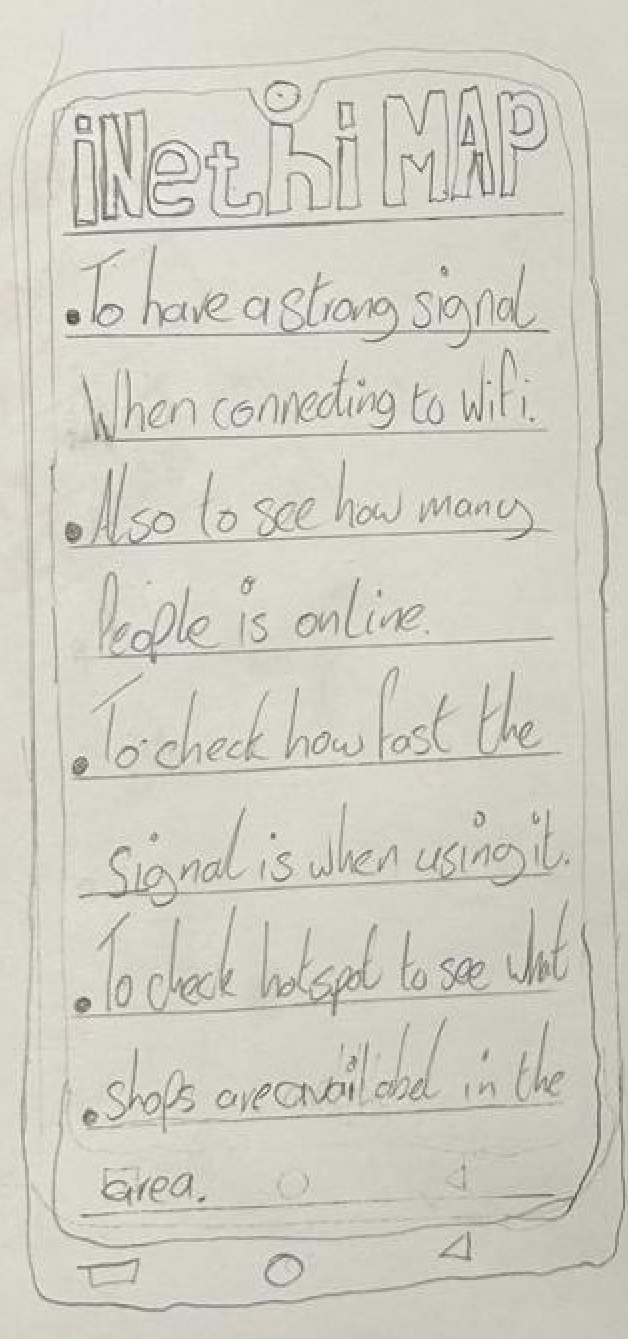 iNethi MAP
• To have a strong signal
When connecting to wifi.
• Also to see how many
People is online.
• To check how fast the
Signal is when using it.
• To check hotspot to see what
• shops are availabel in the
area.